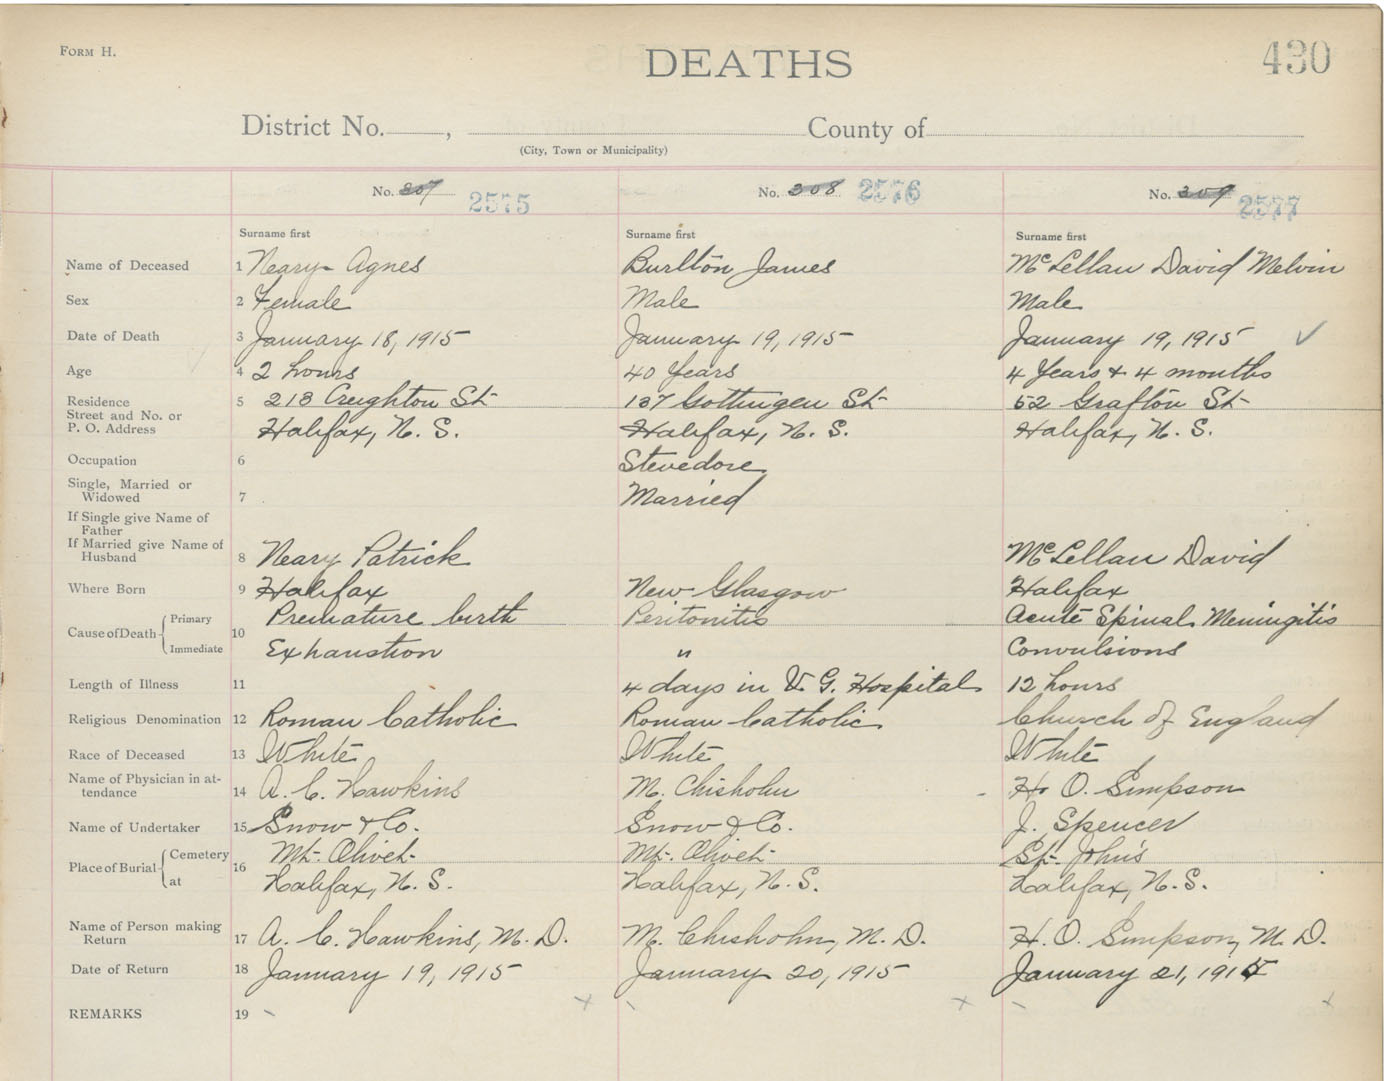 FORM H.
DEATHS
430
District No. , County of
(City, Town or Municipality)
No. 307 2575 No. 308 2576 No. 309 2577
Surname first Surname first Surname first
Name of Deceased 1 Neary Agnes Burlton James McLellan David Melvin
Sex 2 Female Male Male
Date of Death 3 January 18, 1915 January 19, 1915 January 19, 1915 ✓
Age 4 2 hours 40 Years 4 Years & 4 months
Residence 5 213 Creighton St 137 Gottingen St 52 Grafton St
Street and No. or
P. O. Address Halifax, N. S. Halifax, N. S. Halifax, N. S.
Occupation 6 Stevedore
Single, Married or
Widowed 7 Married
If Single give Name of
Father
If Married give Name of
Husband 8 Neary Patrick McLellan David
Where Born 9 Halifax New Glasgow Halifax
Cause of Death Primary 10 Premature birth Peritonitis Acute Spinal Meningitis
Immediate Exhaustion " Convulsions
Length of Illness 11 4 days in V. G. Hospital 12 hours
Religious Denomination 12 Roman Catholic Roman Catholic Church of England
Race of Deceased 13 White White White
Name of Physician in at-
tendance 14 A. C. Hawkins M. Chisholm H. O. Simpson
Name of Undertaker 15 Snow & Co. Snow & Co. J. Spencer
Place of Burial Cemetery 16 Mt. Olivet Mt. Olivet St. John's
at Halifax, N. S. Halifax, N. S. Halifax, N. S.
Name of Person making
Return 17 A. C. Hawkins, M. D. M. Chisholm, M. D. H. O. Simpson, M. D.
Date of Return 18 January 19, 1915 January 20, 1915 January 21, 1915
REMARKS 19